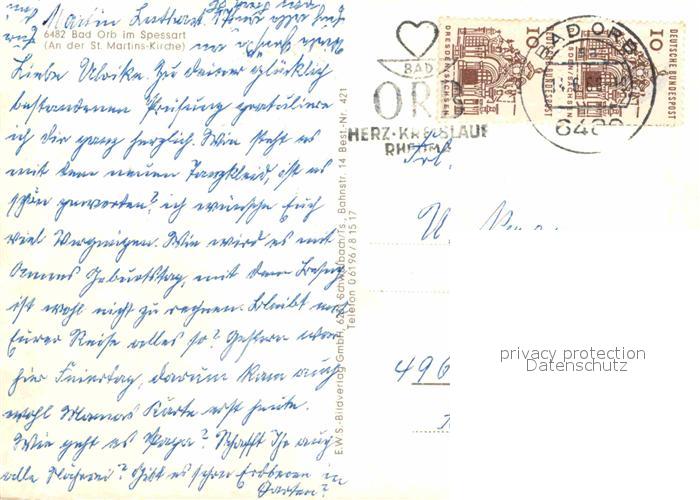 6482 Bad Orb im Spessart
(An der St. Martins-Kirche)
Liebe Ulrike. Zu deiner glücklich
bestandenen Prüfung gratuliere
ich dir ganz herzlich. Wie steht es
mit dem neuen Tanzkleid, ist es
schön geworden? ich wünsche Euch
viel Vergnügen. Wie wird es mit
Omas Geburtstag, mit dem Besuch
ist wohl nicht zu rechnen. Bleibt mit
Eurer Reise alles so? Gestern war
hier Feiertag, darum kam auch
wohl Mamas Karte erst heute.
Wie geht es Papa? Schafft Ihr auch
alle Näherei? Gibt es schon Erdbeeren in
Garten?
E.W.S.-Bildverlag GmbH, Schwalbach/Ts., Bahnstr. 14 Best.-Nr. 421
Telefon 06196/81517
BAD
ORB
HERZ·KREISLAUF
RHEUMA
BAD ORB
DRESDEN/SACHSEN
10
DEUTSCHE BUNDESPOST
DRESDEN/SACHSEN
10
DEUTSCHE BUNDESPOST
Frl.
U
496
privacy protection
Datenschutz